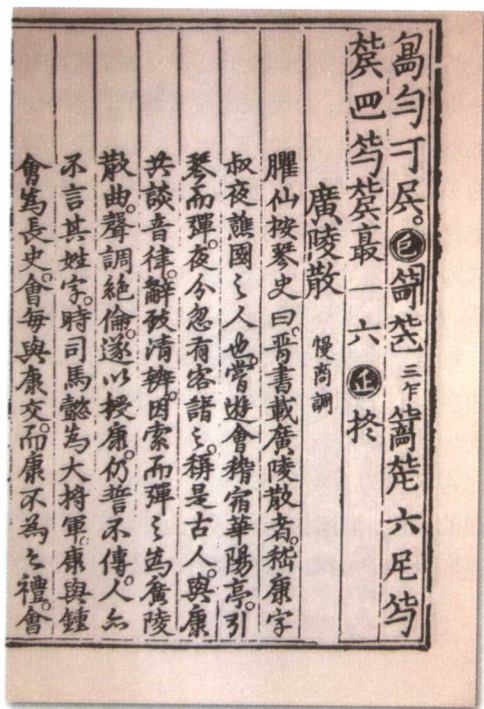 一六
廣陵散 慢商調
臞仙按琴史曰。晋書載廣陵散者。嵇康字
叔夜譙國〻人也。甞遊會稽宿華陽亭。引
琴而彈。夜分忽有客詣〻。稱是古人。與康
共談音律。辭致清辨。因索而彈〻為廣陵
散曲。聲調絕倫。遂以授康。仍誓不傳。人亦
不言其姓字。時司馬懿為大將軍。康與鍾
會為長史。會每與康交。而康不為之禮。會